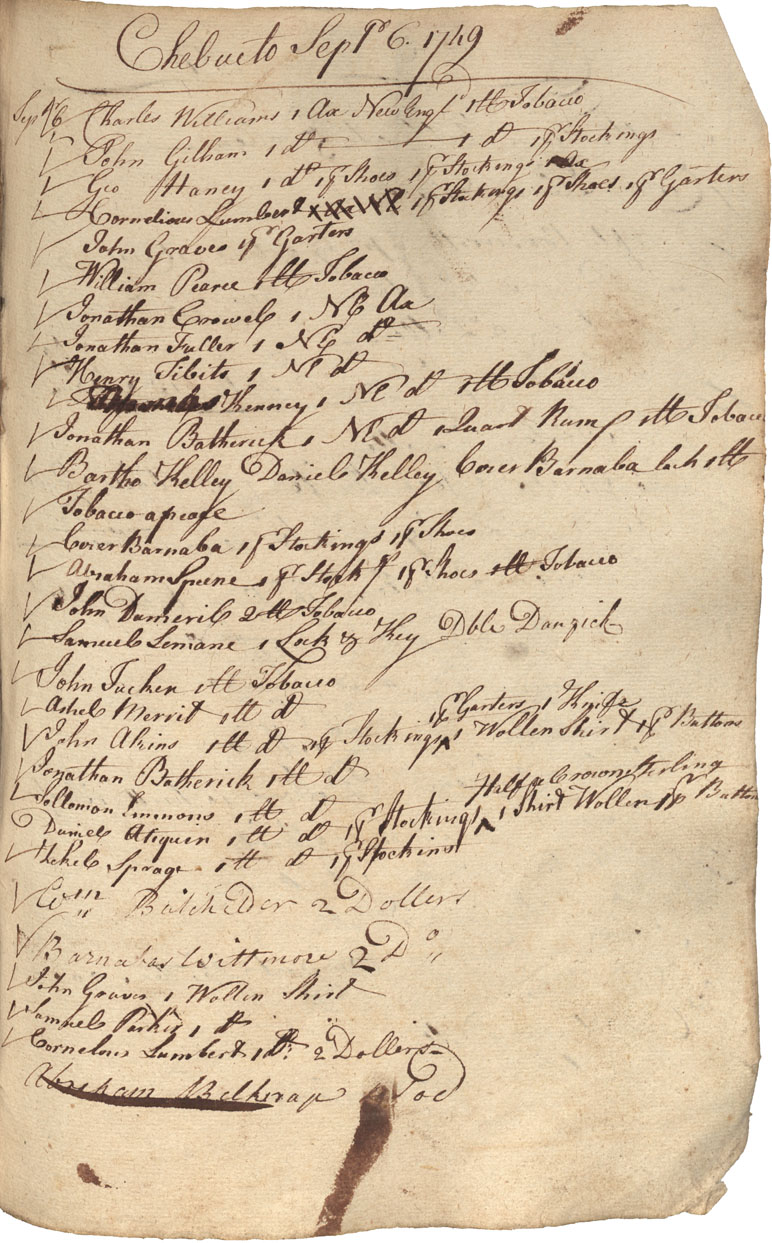 Chebucto Sepr 6. 1749
Sepr 6 Charles Williams 1 Ax New Engd 1 lb Tobaco
John Gilham 1 do 1 do 1 pr Stockings
Geo Haney 1 do 1 pr Shoes 1 pr Stockings 1 Ax
Cornelious Lumbert 1 pr Stockings 1 pr Shoes 1 pr Garters
John Graves 1 pr Garters
William Pearce 1 lb Tobaco
Jonathan Crowel 1 NE Ax
Jonathan Fuller 1 NE do
Henry Tibits 1 NE do
Kenney 1 NE do 1 lb Tobaco
Jonathan Batherick 1 NE do 1 Quart Rum 1 lb Tobaco
Bartho Kelley Daniel Kelley Barnaba Each 1 lb
Tobacco apease
Barnaba 1 pr Stockings 1 pr Shoes
Abraham Speene 1 pr Stock 1 pr Shoes 1 lb Tobacco
John Dameril 2 lb Tobacco
Samuel Lemane 1 Lock & Key Dble Danzick
John Tucker 1 lb Tobacco
Ashel Merrit 1 lb do
1 pr Garters 1 Knife
John Akins 1 lb do 1 pr Stockings 1 Wollen Shirt 1 pr Buttons
Jonathan Batherick 1 lb do
Half a Crown Sterling
Sollomon Emmons 1 lb do 1 pr Stockings 1 Shirt Wollen 1 pr Button
Daniel Atiquen 1 lb do 1 pr Stockins
Zekel Sprage 1 lb do
Wm Batchelder 2 Dollers
Barnabas Wittmore 2 Do
John Graves 1 Wollen Shirt
Samuel Parker 1 do
Cornelous Lumbert 1 do: 2 Dollers
Abraham Belknap